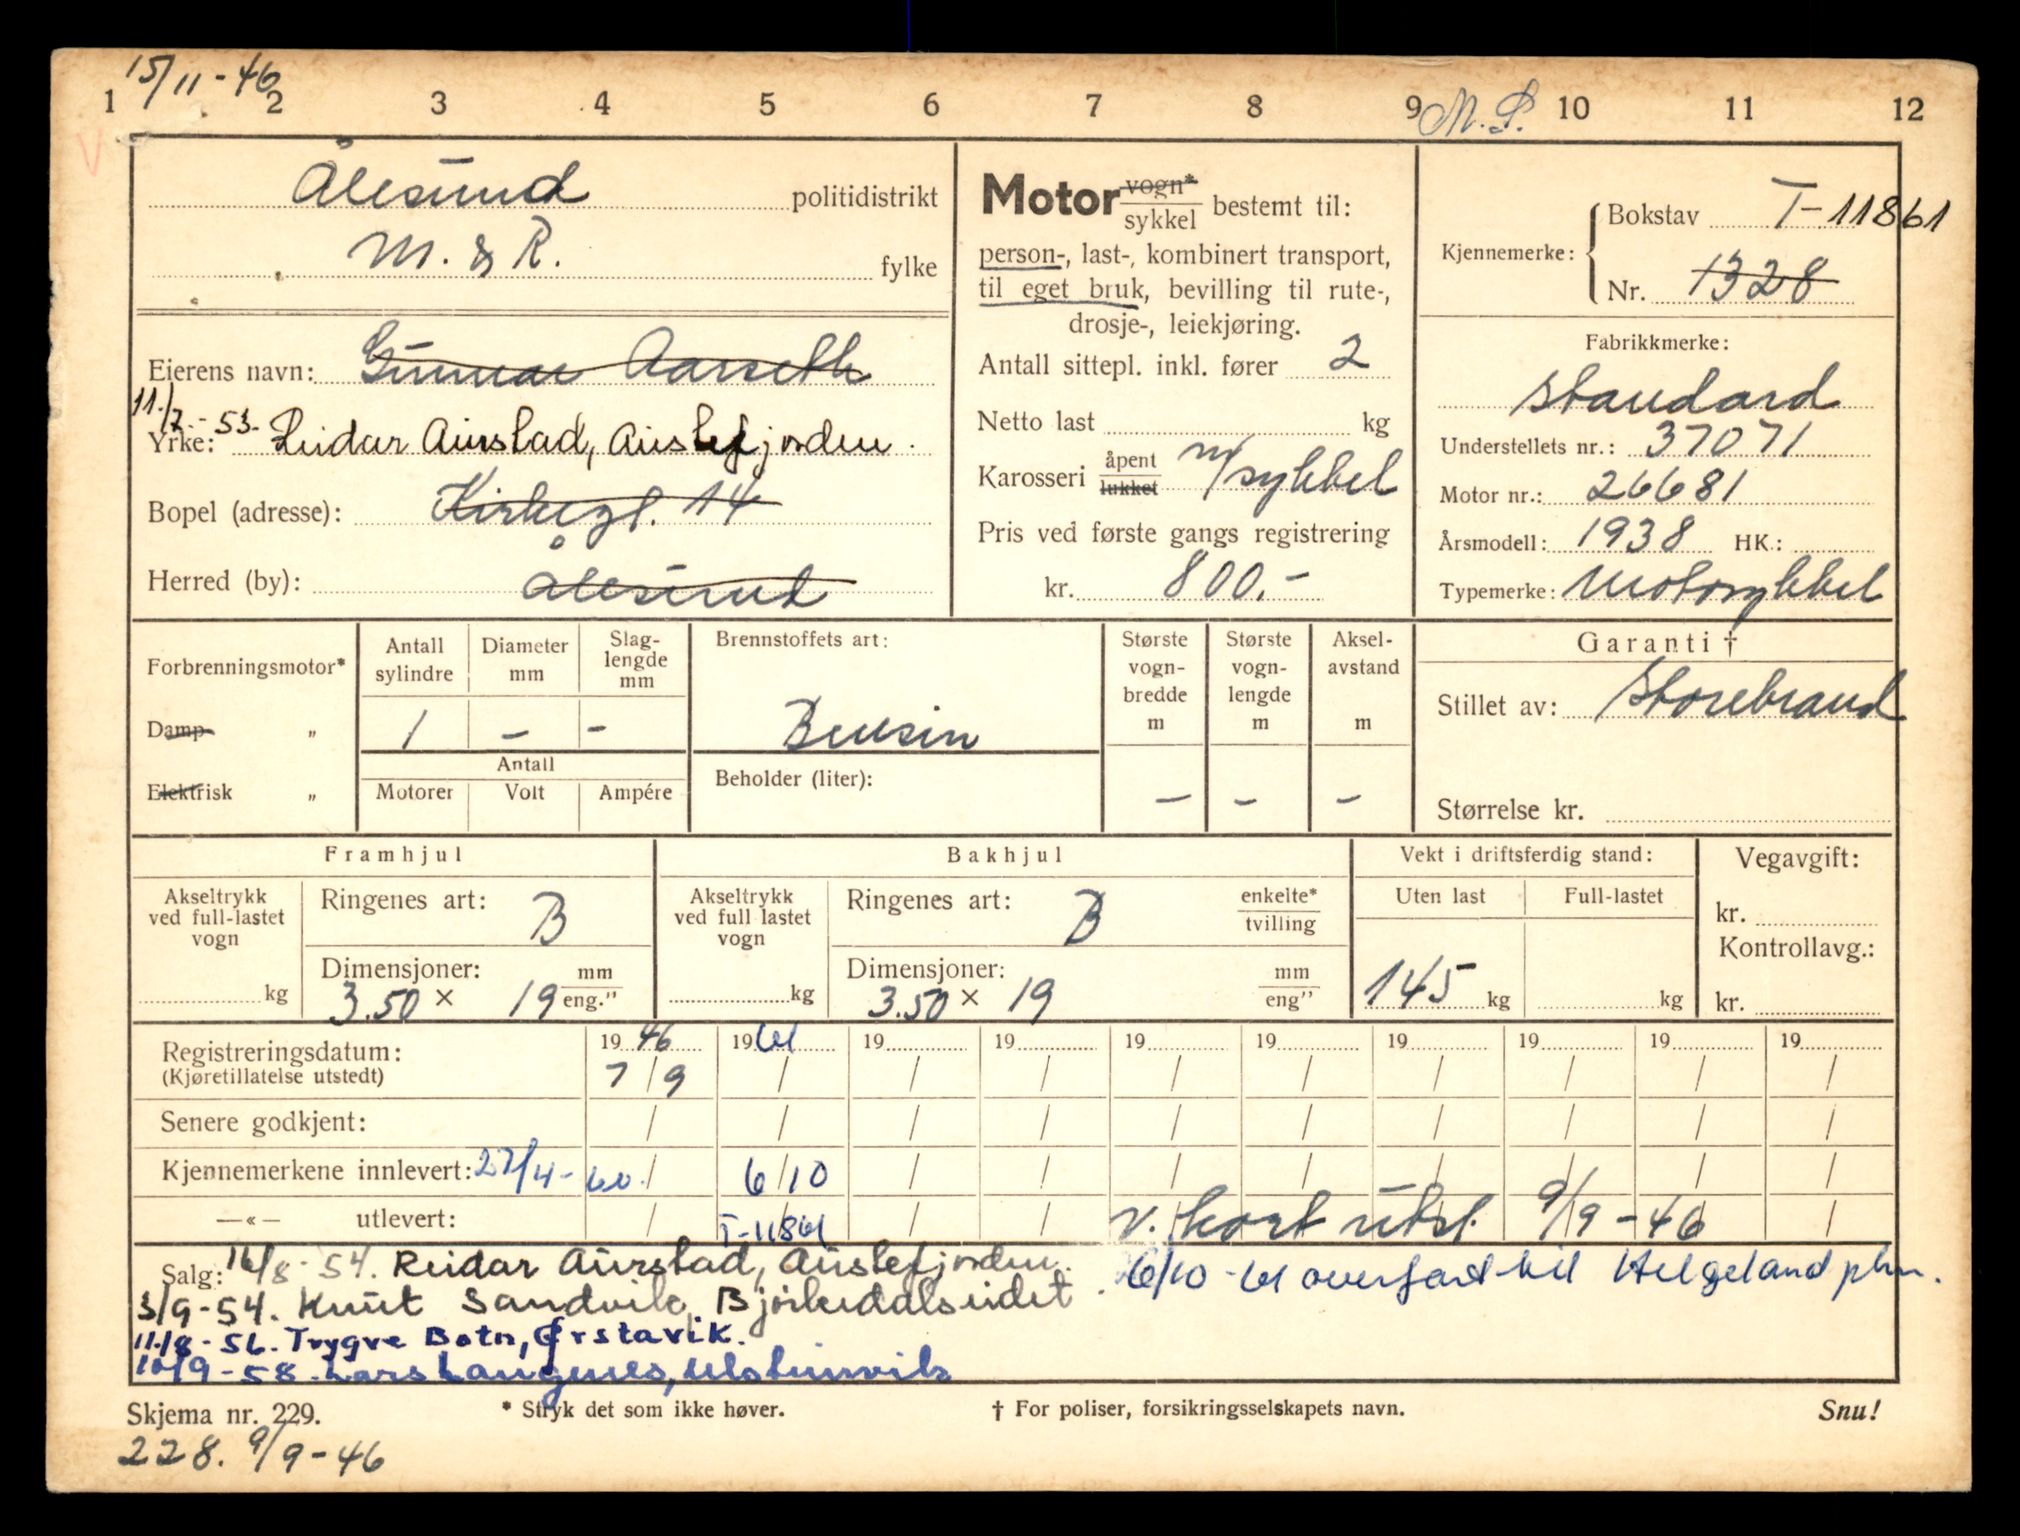 15/11-46
1 2 3 4 5 6 7 8 9 M.S. 10 11 12
V
Ålesund politidistrikt
M. & R. fylke
Eierens navn: Gunnar Aarseth
11./7.-53.
Yrke: Reidar Aurstad, Austefjorden.
Bopel (adresse): Kirkegt. 14
Herred (by): Ålesund
Motor vogn*/sykkel bestemt til:
person-, last-, kombinert transport,
til eget bruk, bevilling til rute-,
drosje-, leiekjøring.
Antall sittepl. inkl. fører 2
Netto last kg
Karosseri åpent/lukket m/sykkel
Pris ved første gangs registrering
kr. 800.-
Kjennemerke: Bokstav T-11861
Nr. 1328
Fabrikkmerke:
Standard
Understellets nr.: 37071
Motor nr.: 26681
Årsmodell: 1938 HK.:
Typemerke: Motorsykkel
Forbrenningsmotor*
Damp- „
Elektrisk „
Antall sylindre
Diameter mm
Slag-lengde mm
1 - -
Antall
Motorer Volt Ampére
Brennstoffets art:
Bensin
Beholder (liter):
Største vogn-bredde m
Største vogn-lengde m
Aksel-avstand m
- - -
Garanti †
Stillet av: Storebrand
Størrelse kr.
Framhjul
Akseltrykk ved full-lastet vogn
kg
Ringenes art: B
Dimensjoner: mm/eng."
3.50 × 19
Bakhjul
Akseltrykk ved full lastet vogn
kg
Ringenes art: B enkelte*/tvilling
Dimensjoner: mm/eng"
3.50 × 19
Vekt i driftsferdig stand:
Uten last Full-lastet
145 kg kg
Vegavgift:
kr.
Kontrollavg.:
kr.
Registreringsdatum: 19 46 19 61 19 19 19 19 19 19 19 19
(Kjøretillatelse utstedt) 7/9 / / / / / / / / /
Senere godkjent: / / / / / / / / / /
Kjennemerkene innlevert: 27/4-60. / 6/10 / / / / / / / /
—«— utlevert: / T-11861 / / V. kort utst. 9/9-46
Salg: 16/8-54. Reidar Aurstad, Austefjorden. 6/10-61 overført til Helgeland pkm.
3/9-54. Knut Sandvik, Bjørkedalseidet.
11/8-56. Trygve Botn, Ørstavik.
10/9-58. Lars Haugenes, Ulsteinvik
Skjema nr. 229. * Stryk det som ikke høver. † For poliser, forsikringsselskapets navn. Snu!
228. 9/9-46